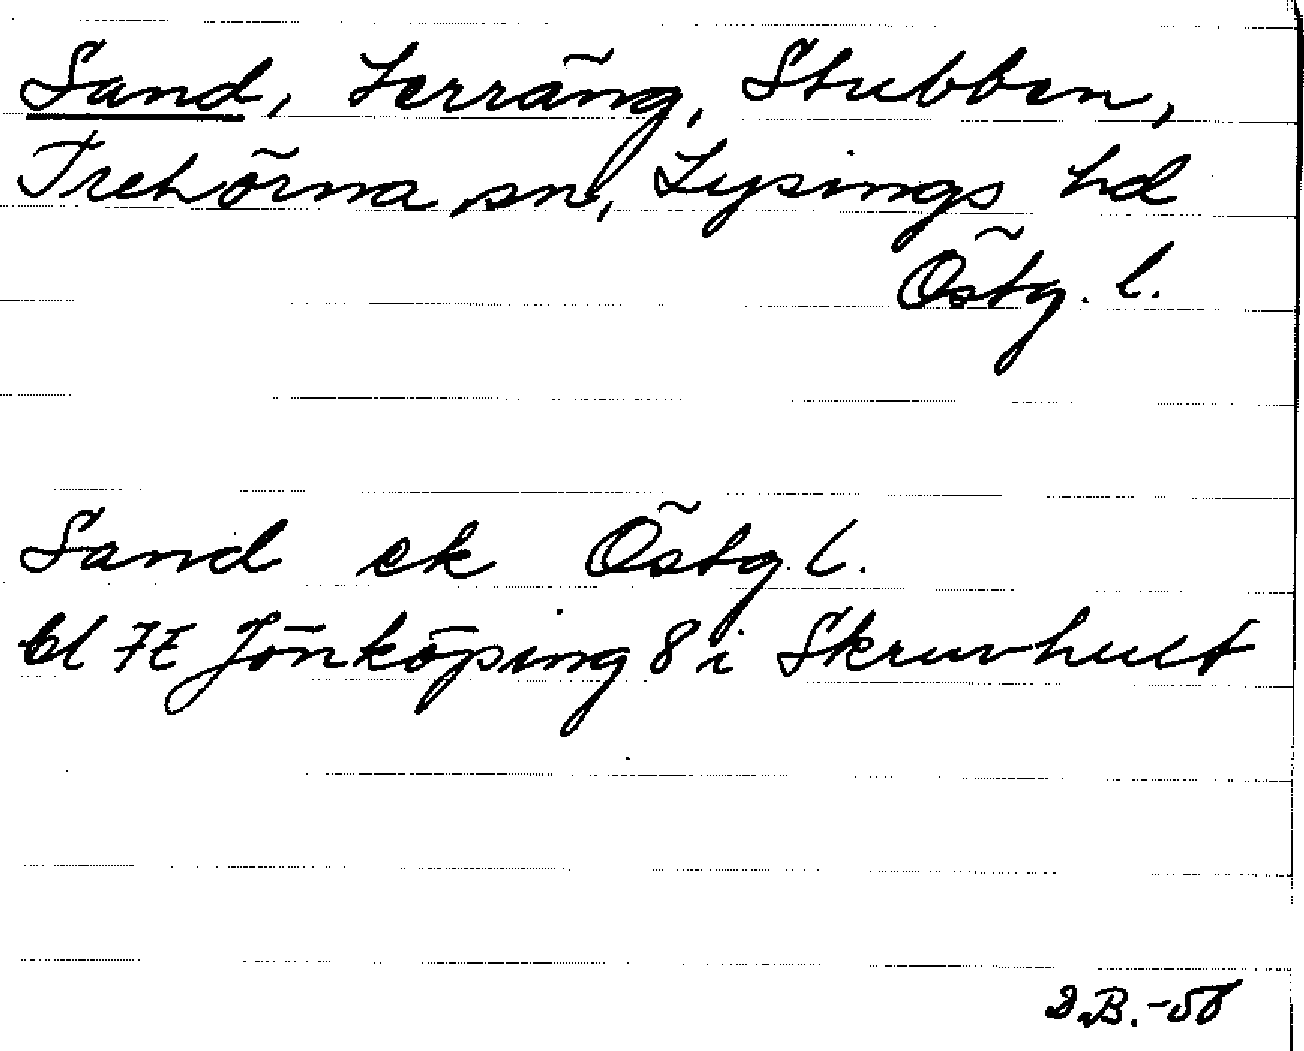 Sand, Terräng, Stubben,
Trehörna sn, Lysings hd
Östg. l.
Sand ek Östg. l.
bl 7E Jönköping 8 i Skruvhult
D.B. -58